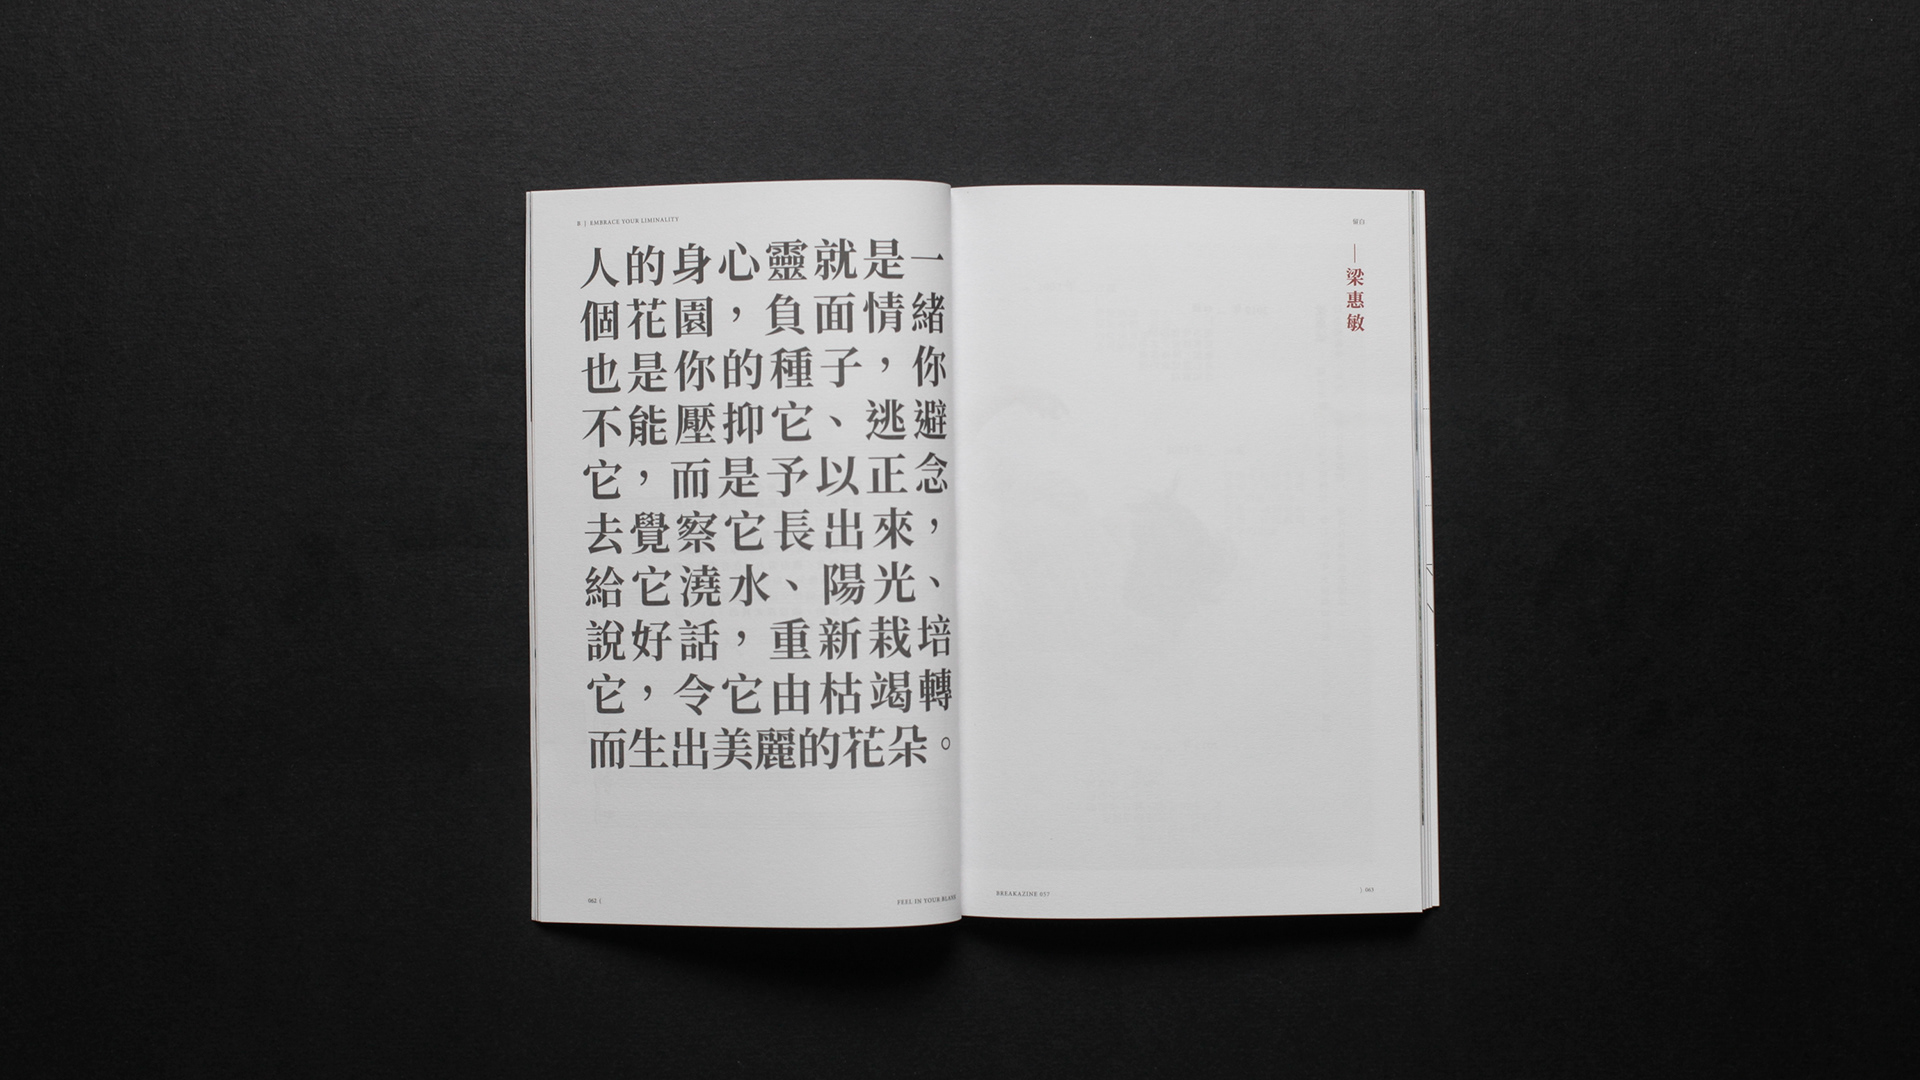 B ] EMBRACE YOUR LIMINALITY
人的身心靈就是一
個花園，負面情緒
也是你的種子，你
不能壓抑它、逃避
它，而是予以正念
去覺察它長出來，
給它澆水、陽光、
說好話，重新栽培
它，令它由枯竭轉
而生出美麗的花朵。
062 [
FEEL IN YOUR BLANK
留白
—梁惠敏
BREAKAZINE 057
] 063